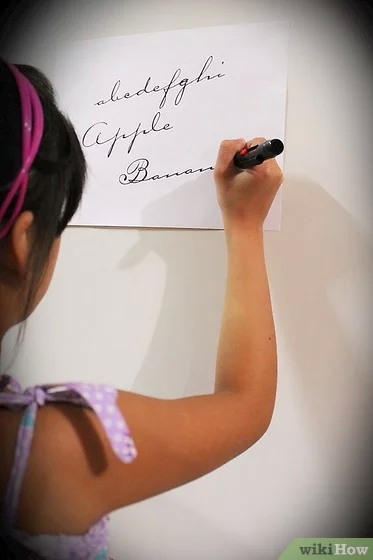 abcdefghi
Apple
Banan
wikiHow